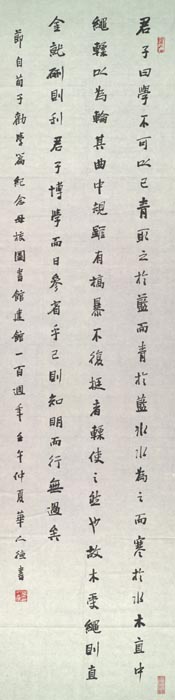 君子曰學不可以已青取之於藍而青於藍冰水為之而寒於水木直中
繩輮以為輪其曲中規雖有槁暴不復挺者輮使之然也故木受繩則直
金就礪則利君子博學而日參省乎己則知明而行無過矣
節自荀子勸學篇紀念母校圖書館建館一百週年壬午仲夏華人德書